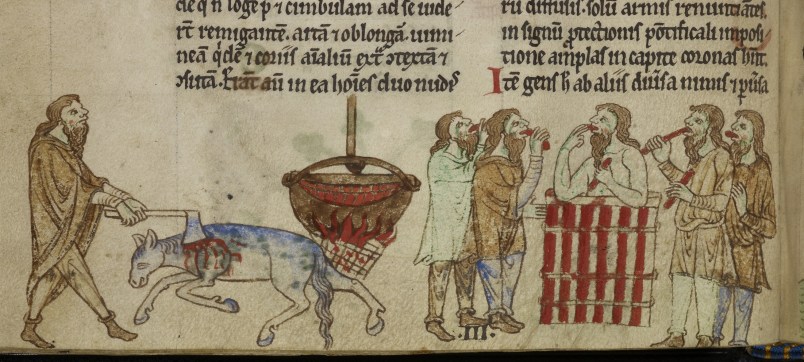 de q̄ n̄ longe ꝑ ⁊ cimbulam ad se uide
rt̄ remigantē. artā ⁊ oblongā. uimi
neā q̇dē ⁊ coriis aīaliū ext̄ ꝯtextā ⁊
ꝯsutā. Erāt aū in ea hoīes duo nudꝭ
rū diffusis. solū armis renuntiātes.
in signū ꝓtectionis pōtificali imposi
tione amplas in capite coronas hn̄t.
Itē gens h̄ ab aliis diuīsa nimis ⁊
.III.